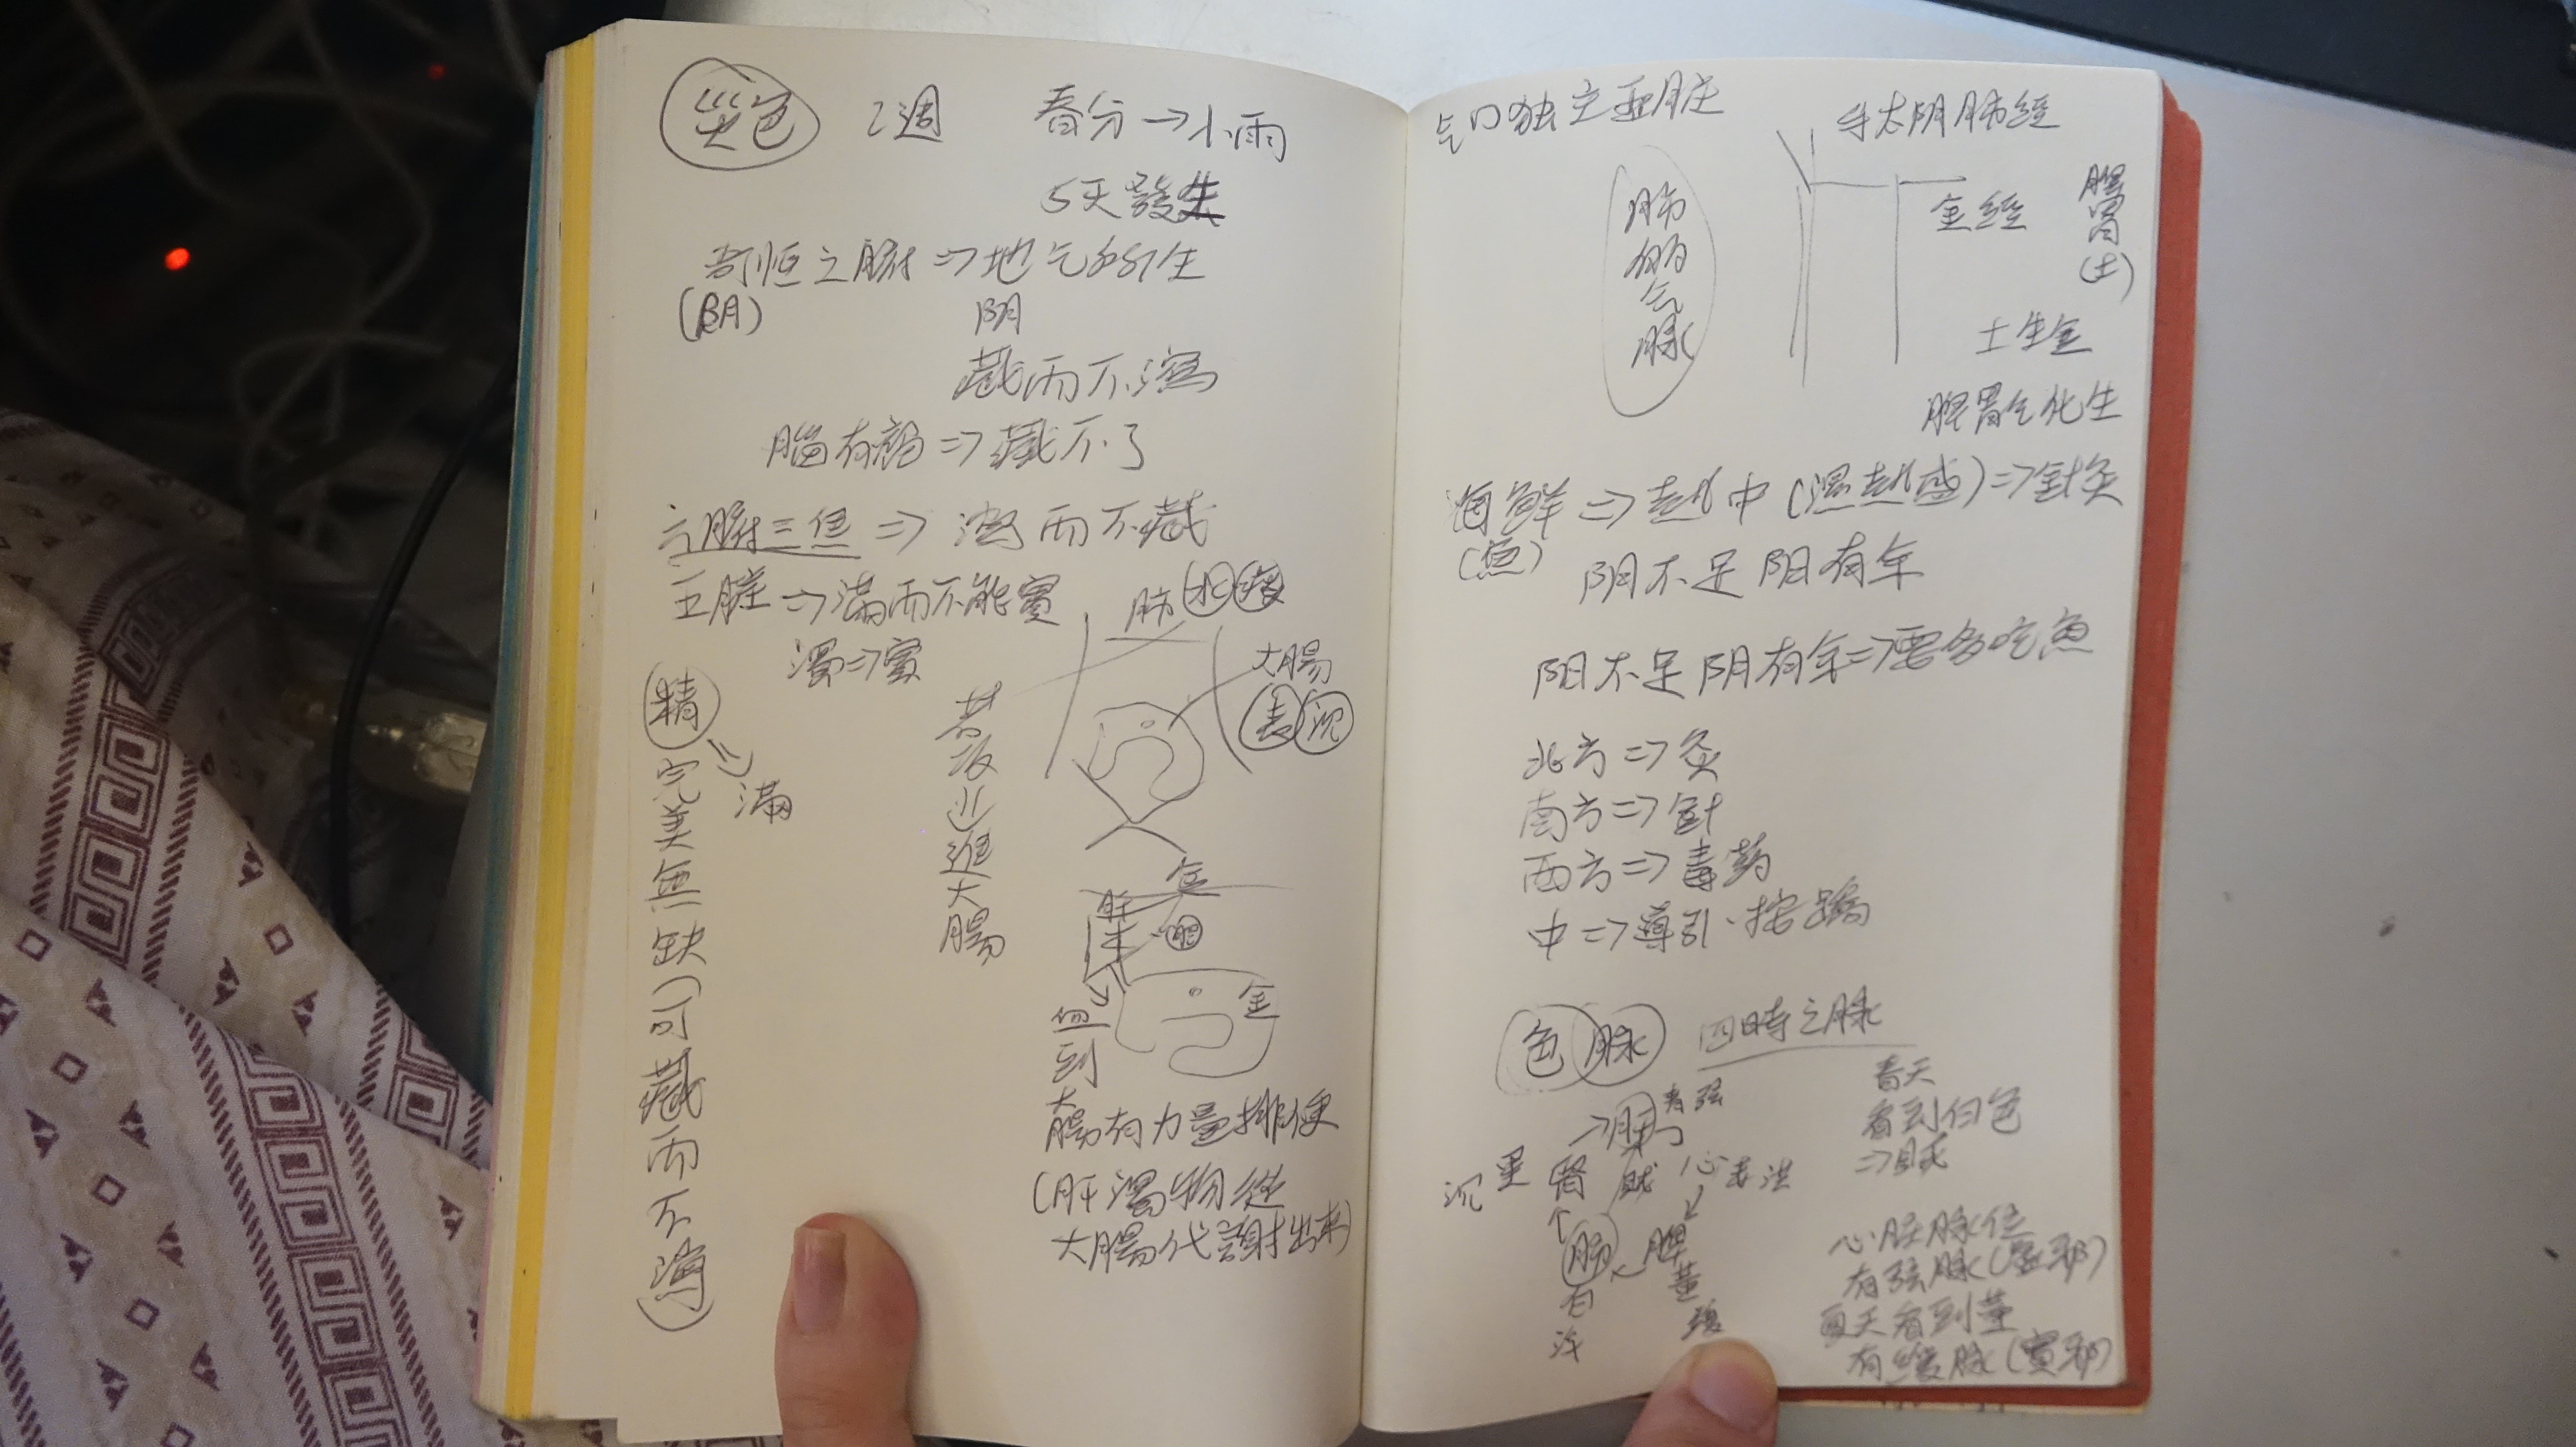 2週
春分→小雨
5天發生
奇恒之腑⇒地气所生
(阴)
阴
藏而不瀉
腦有病⇒藏不了
六腑三焦⇒瀉而不藏
五臟⇒滿而不能實
濁⇒實
肺
大腸
精
⇒滿
完美無缺
藏而不瀉
逆進大腸
金
肝
木
金
血到大
腸有力量排便
(肝濁物從
大腸代謝出來)
气口独主五脏
手太阴肺經
肺朝气脉
金經
脾胃(土)
土生金
脾胃气化生
海鮮⇒热中(濕热盛)⇒針灸
(魚)
阴不足阳有余
阳不足阴有余⇒要多吃魚
北方⇒灸
南方⇒針
西方⇒毒药
中⇒導引、按蹻
色脉
四時之脉
→肝
青弦
沉黑腎
心
洪
脾
黃
緩
肺
白
浮
春天
看到白色
⇒賊
心脏脉位
有弦脉(虛邪)
夏天看到黃
有緩脉(實邪)